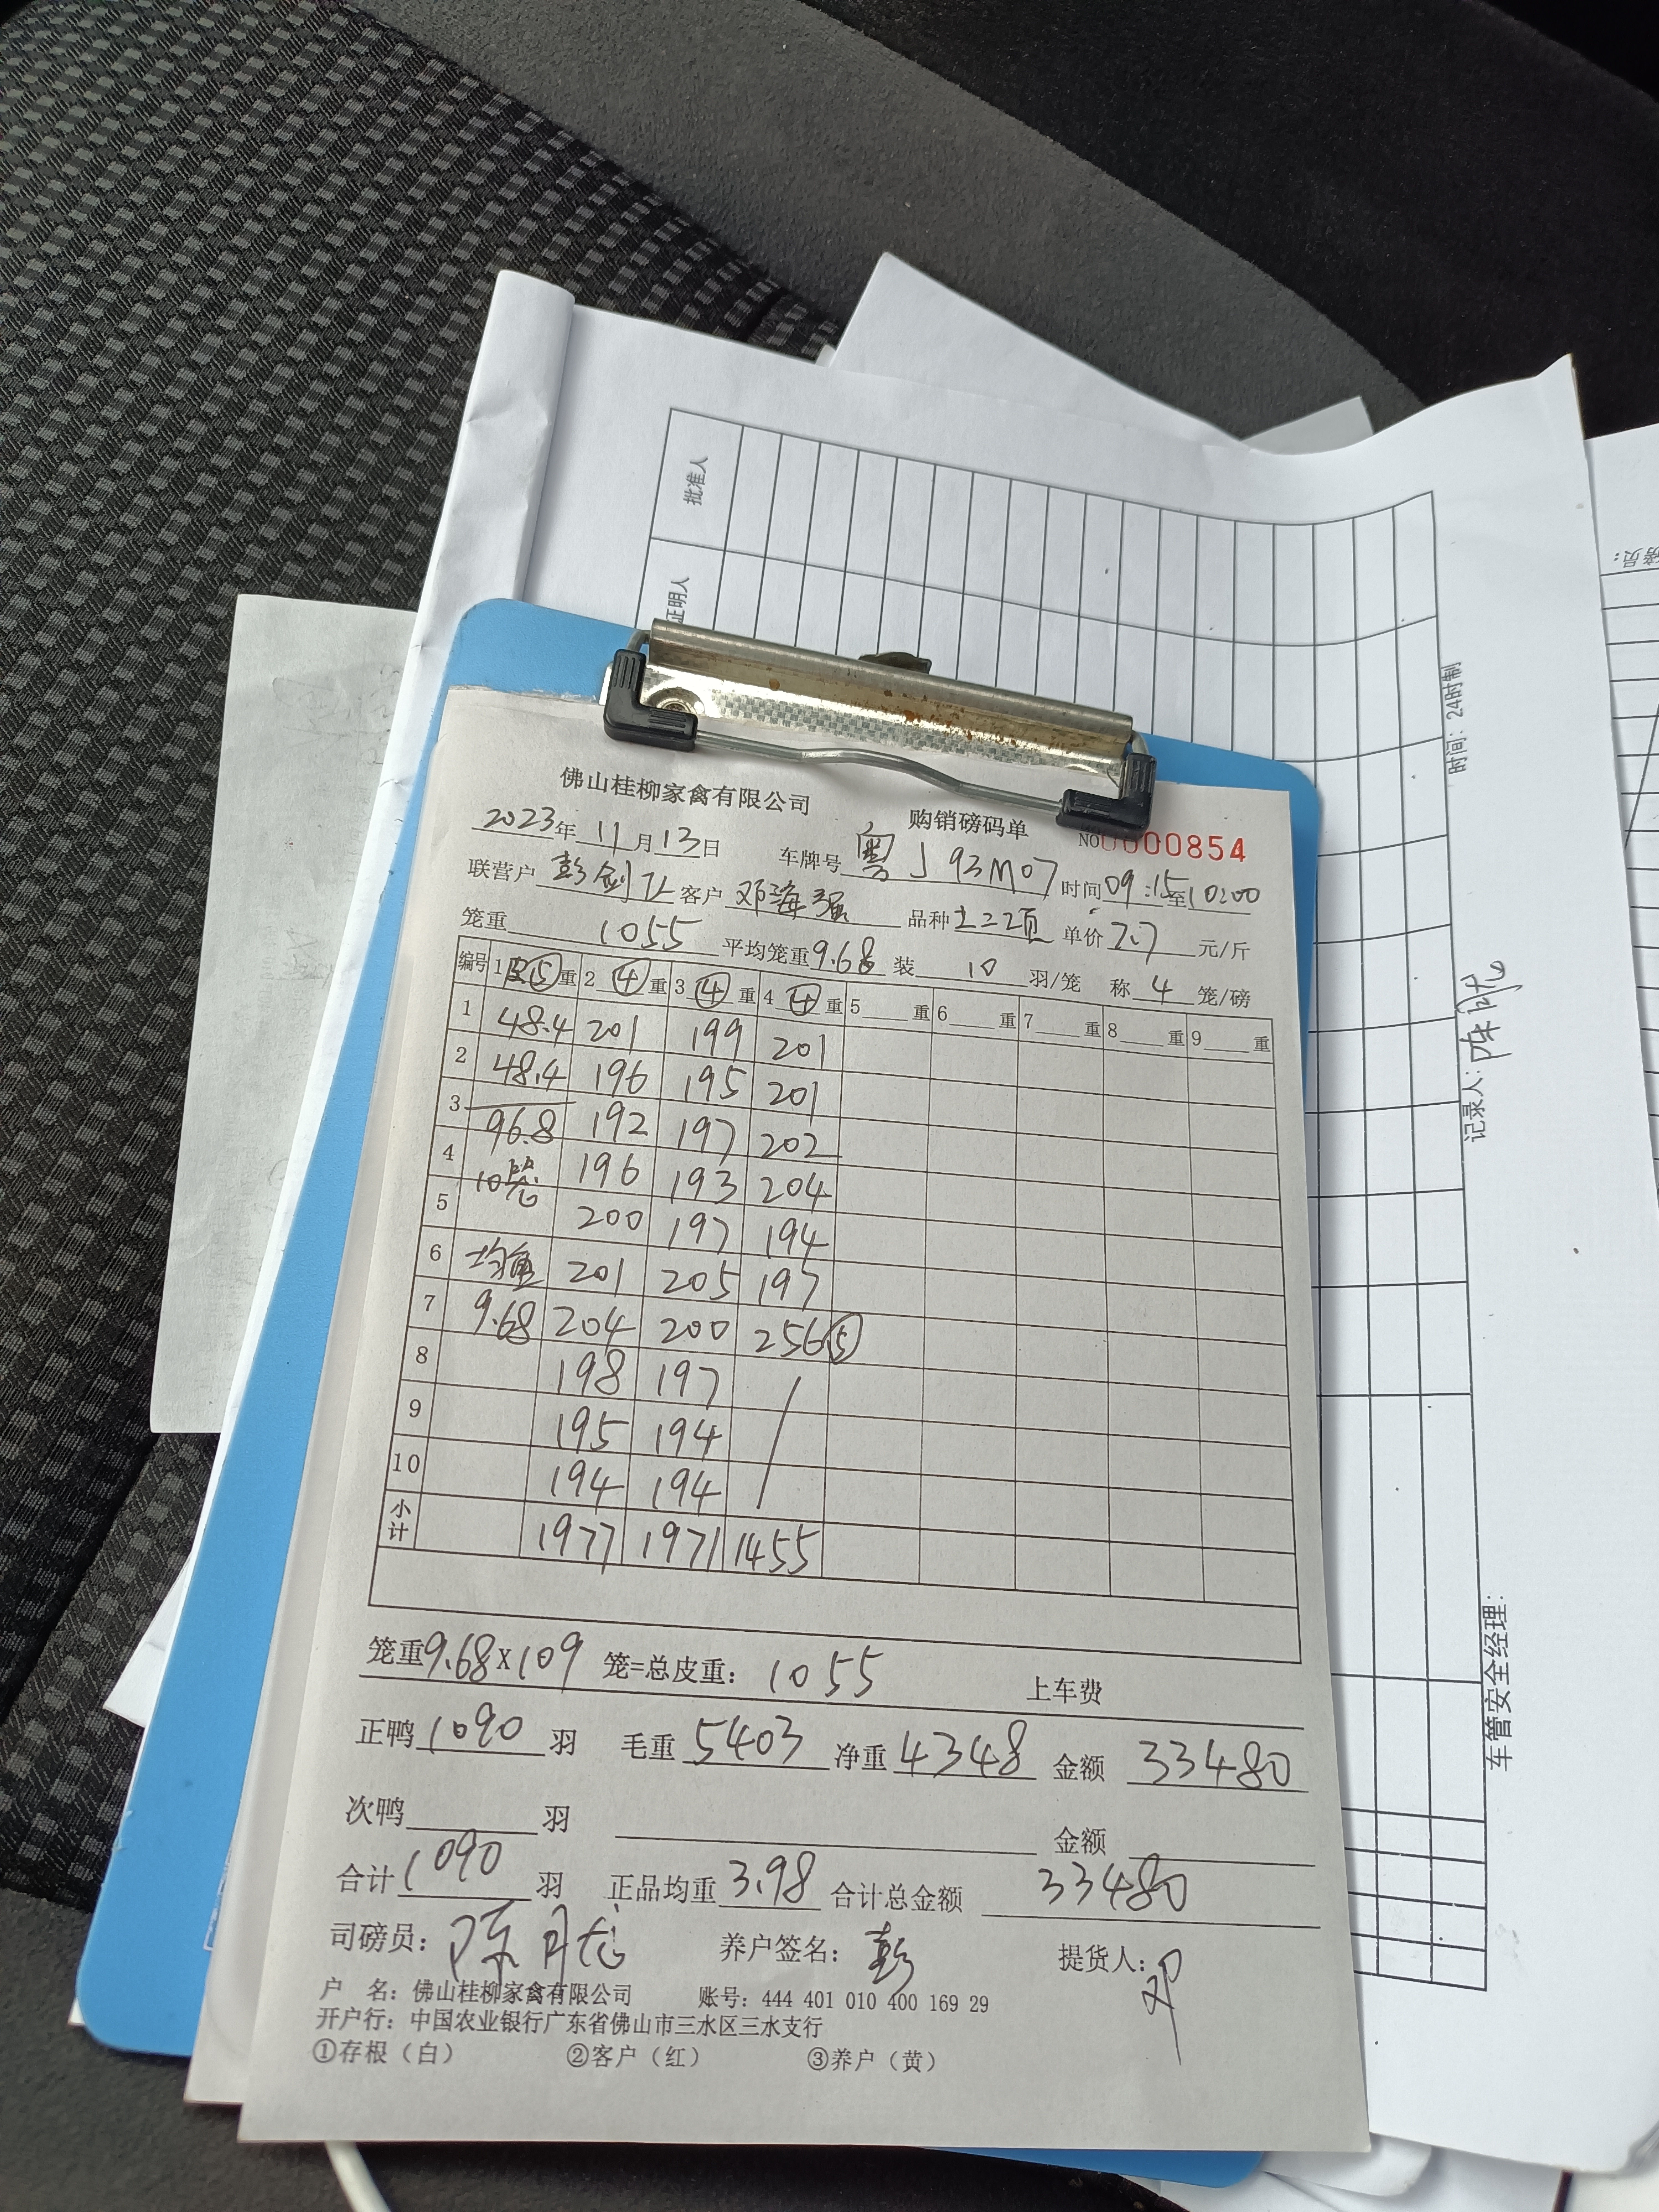 批准人
证明人
时间：24时制
记录人：
车管安全经理：
佛山桂柳家禽有限公司 购销磅码单 NO 0000854
2023年11月13日 车牌号粤J93M07 时间09:15至10:00
联营户彭剑 客户邓海强 品种土二2项 单价7.7元/斤
笼重1055 平均笼重9.68 装10羽/笼 称4笼/磅
编号 1皮⑤重 2④重 3④重 4④重 5重 6重 7重 8重 9重
1 48.4 201 199 201
2 48.4 196 195 201
3 96.8 192 197 202
4 10笼 196 193 204
5 200 197 194
6 均重 201 205 197
7 9.68 204 200 256⑤
8 198 197
9 195 194
10 194 194
小计 1977 1971 1455
笼重9.68X109笼=总皮重：1055 上车费
正鸭1090羽 毛重5403 净重4348 金额33480
次鸭 羽 金额
合计1090羽 正品均重3.98 合计总金额33480
司磅员：陈 养户签名：彭 提货人：邓
户 名：佛山桂柳家禽有限公司 账号：444 401 010 400 169 29
开户行：中国农业银行广东省佛山市三水区三水支行
①存根（白） ②客户（红） ③养户（黄）